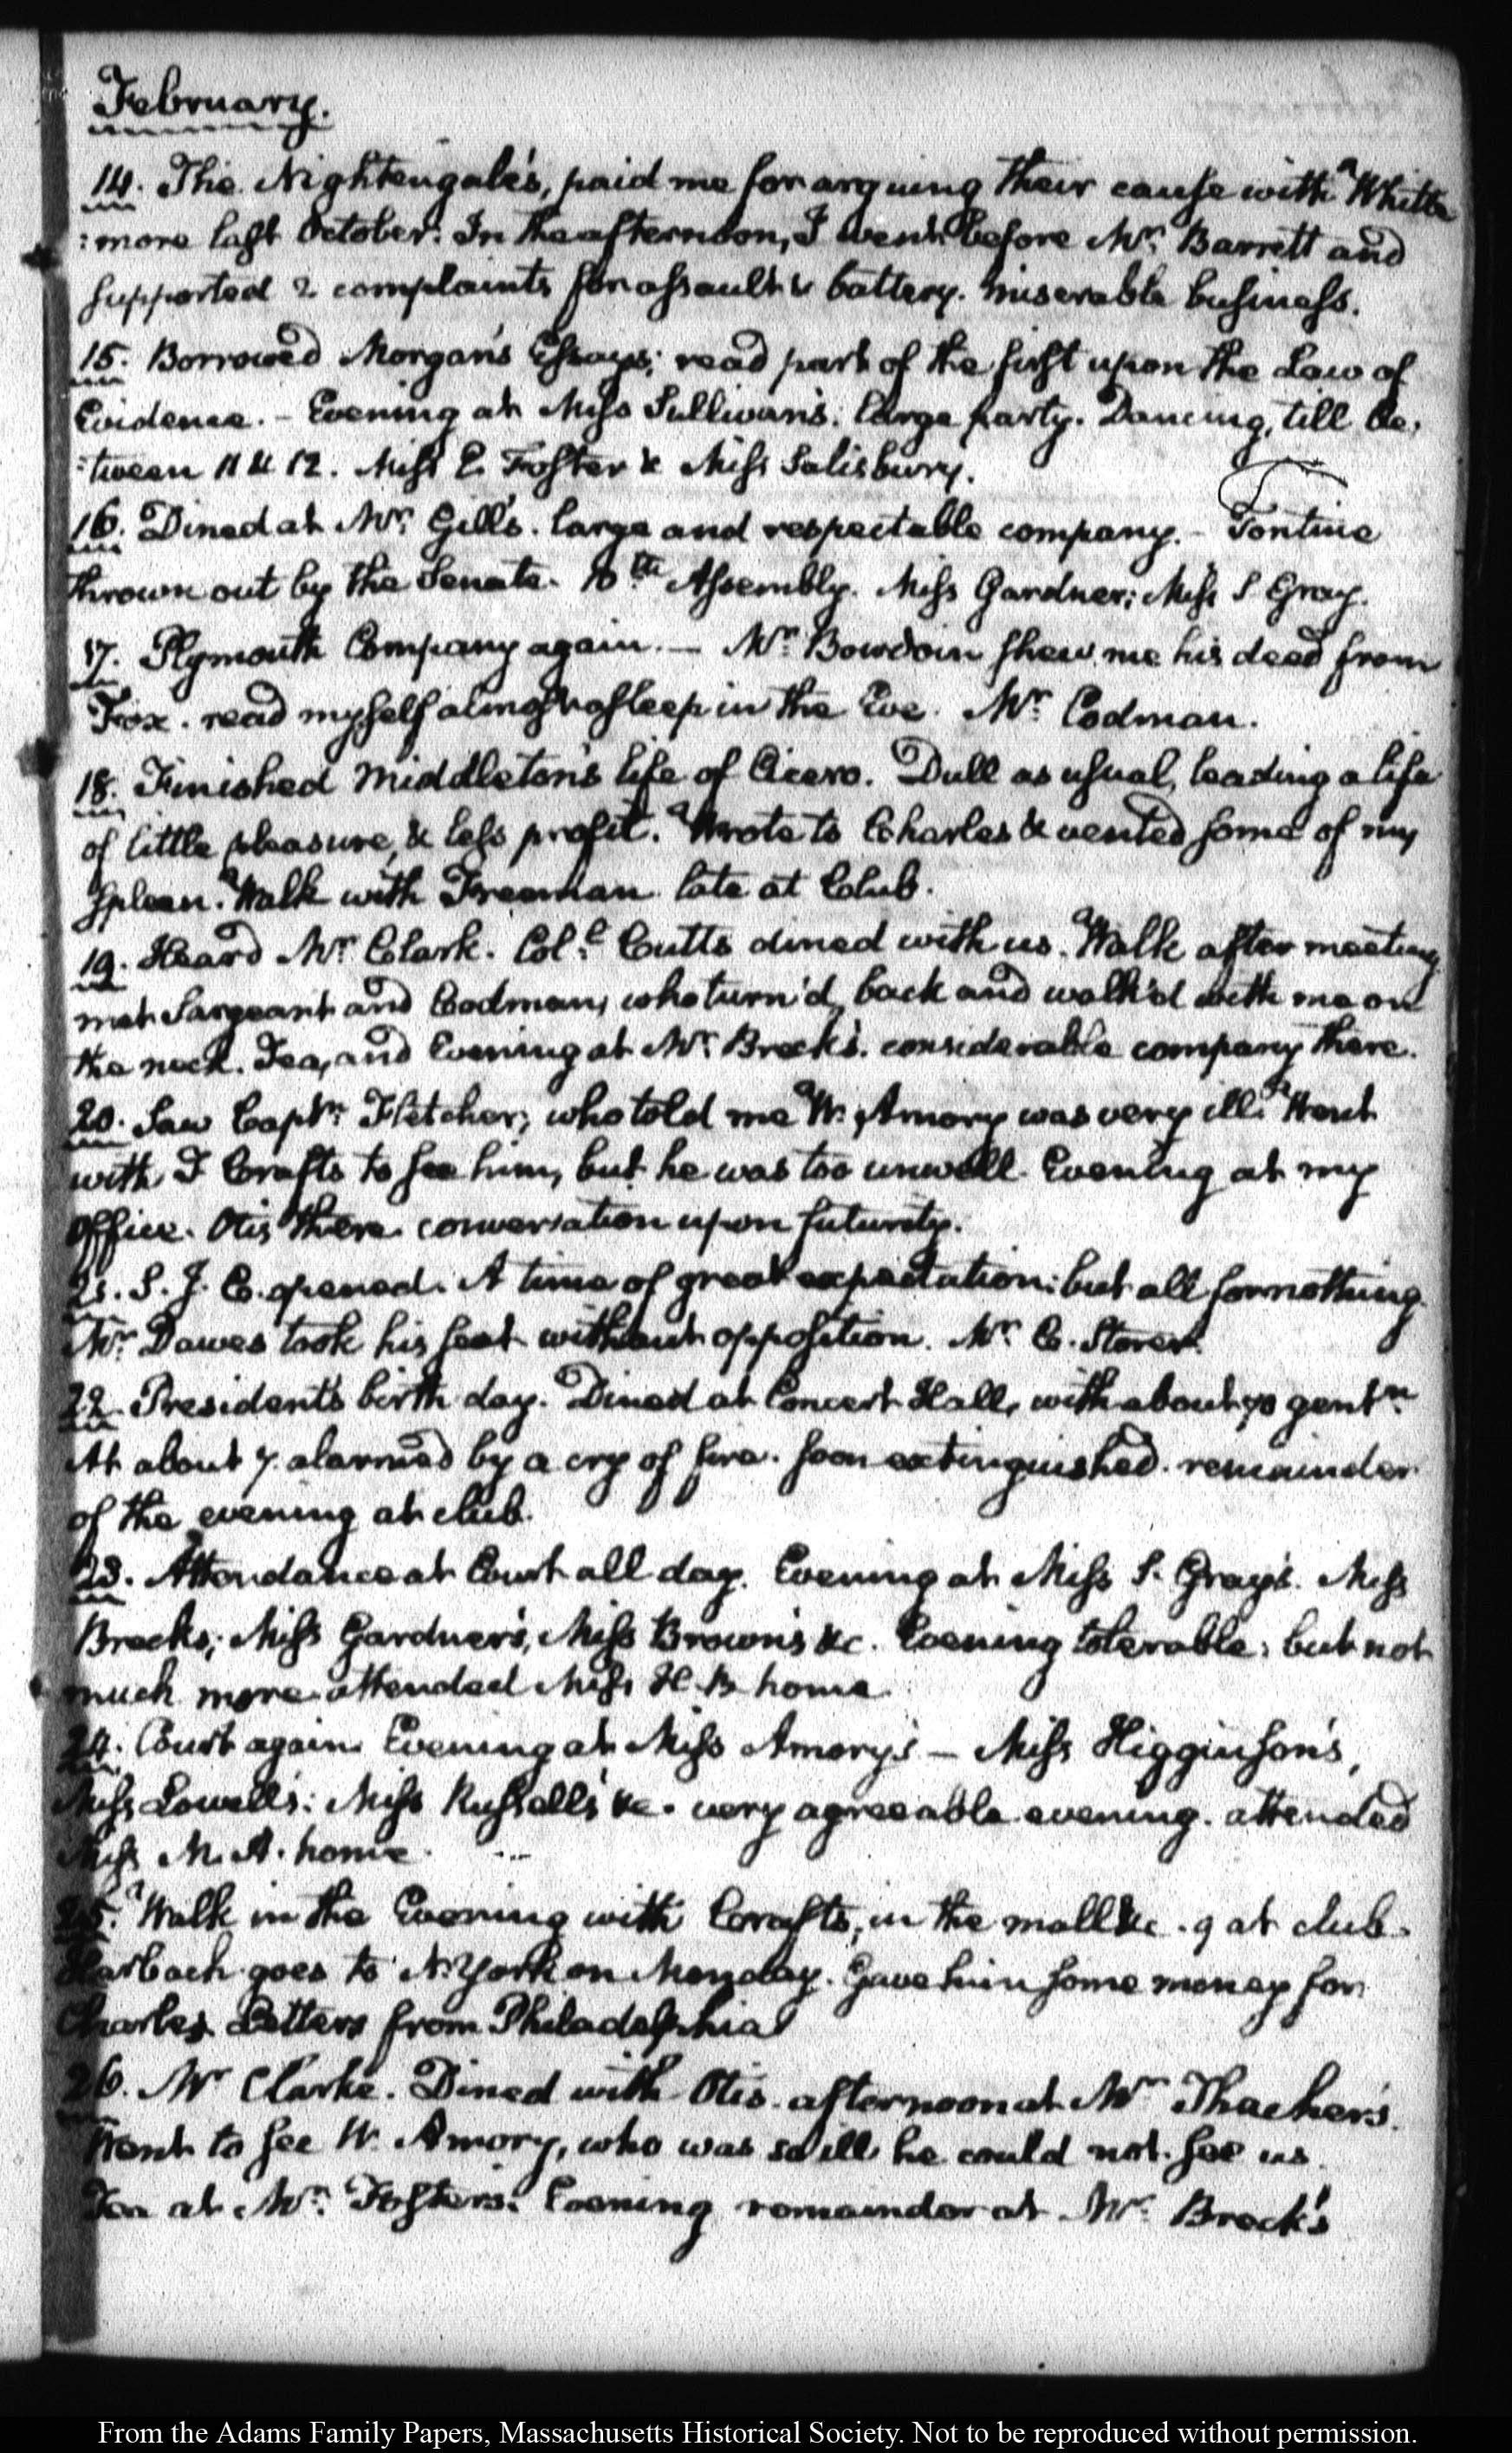 February.
14. The Nightengale's, paid me for arguing their cause with Whitte
:more last October. In the afternoon, I went before Mr. Barrett and
supported 2 complaints for assault & battery. miserable business.
15. Borrowed Morgan's Essays; read part of the first upon the Law of
Evidence. - Evening at Miss Sullivan's. large party. Dancing, till be,
:tween 11 & 12. Miss E. Foster & Miss Salisbury.
16. Dined at Mr. Gill's. large and respectable company. - Tontine
thrown out by the Senate. 10th Assembly. Miss Gardner; Miss S Gray.
17. Plymouth Company again. — Mr. Bowdoin shew me his deed from
Fox. read myself almost asleep in the Eve. Mr. Codman.
18. Finished Middleton's life of Cicero. Dull as usual, leading a life
of little pleasure, & less profit. Wrote to Charles & vented some of my
spleen. Walk with Freeman. late at Club.
19. Heard Mr. Clark. Col.l Cutts dined with us. Walk after meeting
met Sargeant and Codman, who turn'd back and walk'd with me on
the neck. Tea, and Evening at Mr. Breck's. considerable company there.
20. Saw Captn. Fletcher, who told me W. Amory was very ill. Went
with T Crafts to see him, but he was too unwell. Evening at my
office. Otis there. conversation upon futurity.
21. S. J. C. opened. A time of great expectation: but all for nothing
Mr. Dawes took his seat without opposition. Mr. C. Storer.
22. President's birth day. Dined at Concert Hall, with about 70 gentn.
At about 7. alarmed by a cry of fire. soon extinguished. remainder
of the evening at club.
23. Attendance at Court all day. Evening at Miss S. Gray's. Miss
Brecks; Miss Gardner's, Miss Brown's &c. Evening tolerable: but not
much more. attended Miss H. B home
24. Court again. Evening at Miss Amory's — Miss Higginson's,
Miss Lowell's: Miss Russell's &c. very agreeable evening. attended
Miss M. A. home.
25. Walk in the Evening with Crafts, in the mall &c. 9 at club.
Harbach goes to N. York on Monday. Gave him some money for
Charles. Letters from Philadelphia
26. Mr Clarke. Dined with Otis. afternoon at Mr Thacher's.
Went to see W. Amory, who was so ill he could not see us.
Tea at Mr. Foster's. Evening remainder at Mr. Breck's
From the Adams Family Papers, Massachusetts Historical Society. Not to be reproduced without permission.